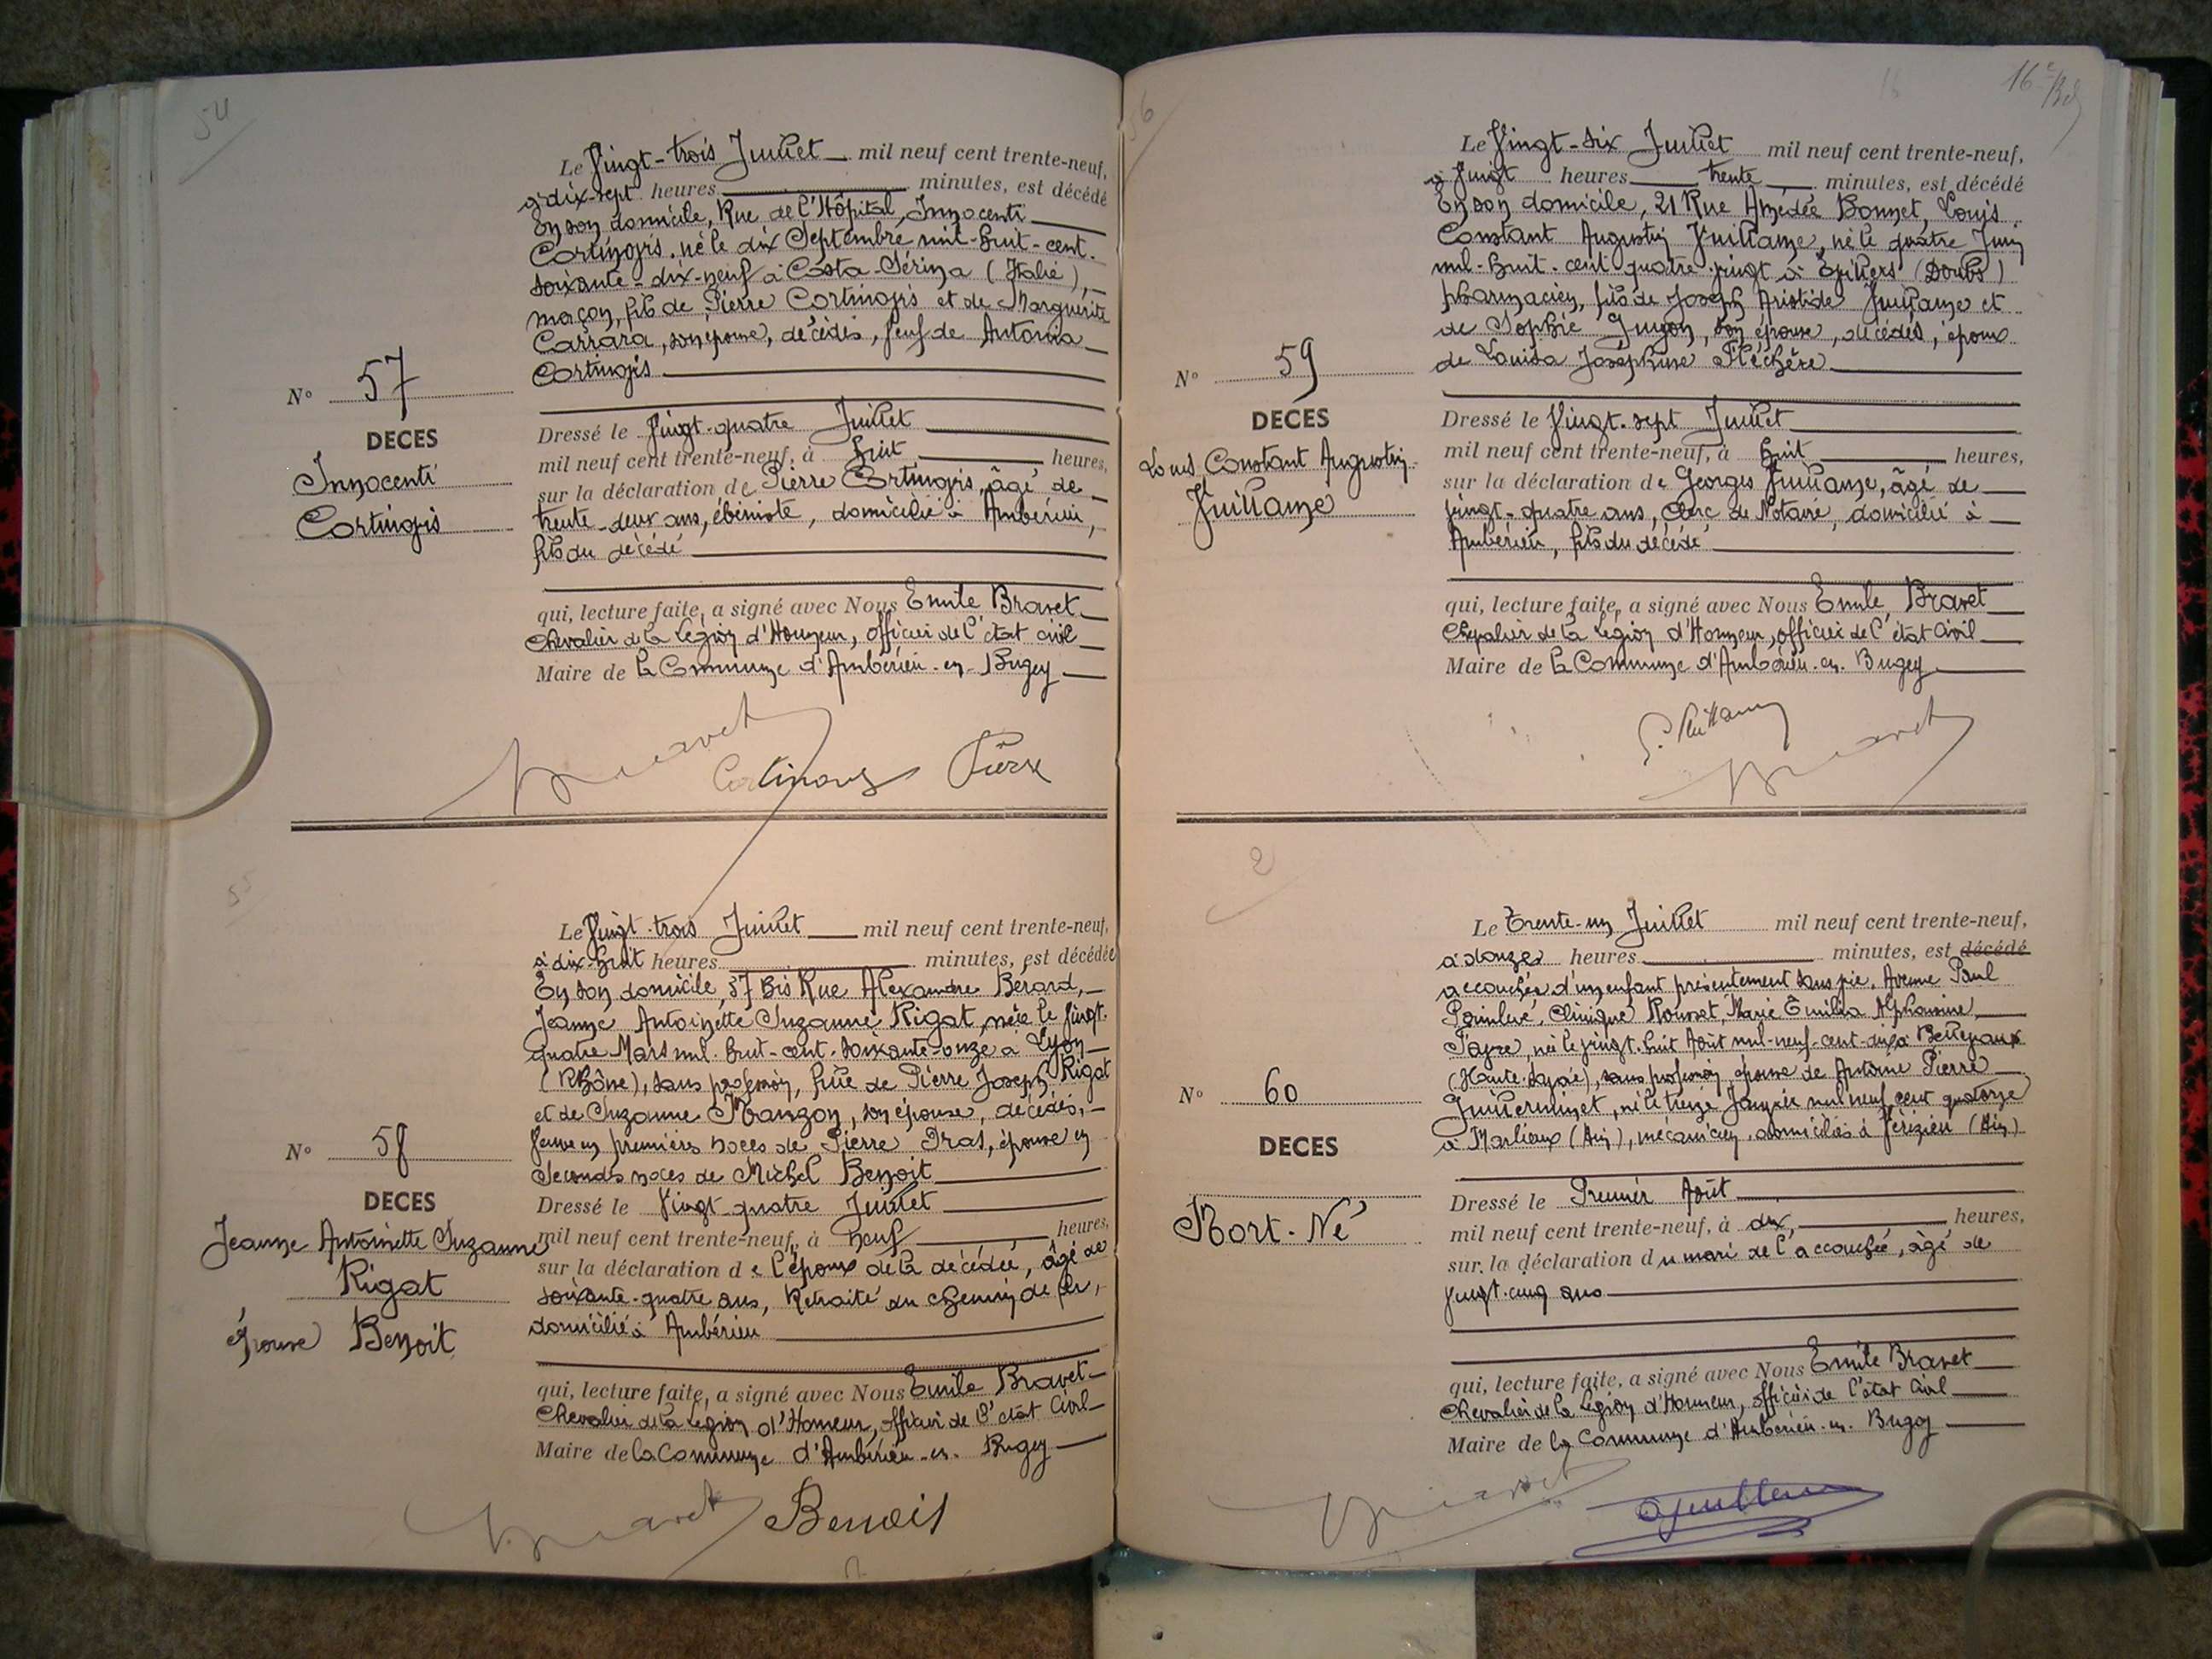 54
Le Vingt-trois Juillet mil neuf cent trente-neuf,
à dix-sept heures minutes, est décédé
En son domicile, Rue de l'Hôpital, Innocenti
Cortinovis, né le dix Septembre mil-huit-cent-
soixante-dix-neuf à Costa-Sérina (Italie),
maçon, fils de Pierre Cortinovis et de Marguerite
Carrara, son épouse, décédés, veuf de Antonia
Cortinovis
N° 57
DECES
Innocenti
Cortinovis
Dressé le Vingt-quatre Juillet
mil neuf cent trente-neuf, à huit heures,
sur la déclaration de Pierre Cortinovis, âgé de
trente-deux ans, ébéniste, domicilié à Ambérieu,
fils du décédé
qui, lecture faite, a signé avec Nous Emile Bravet
Chevalier de la Légion d'Honneur, officier de l'état civil
Maire de la Commune d'Ambérieu-en-Bugey
Bravet
Cortinovis Pierre
55
Le Vingt-trois Juillet mil neuf cent trente-neuf,
à dix-huit heures minutes, est décédée
En son domicile, 57 bis Rue Alexandre Bérard,
Jeanne Antoinette Suzanne Rigat, née le vingt-
quatre Mars mil-huit-cent-soixante-onze à Lyon
(Rhône), sans profession, fille de Pierre Joseph Rigat
et de Suzanne Manzon, son épouse, décédés,
Veuve en premières noces de Pierre Dras, épouse en
Secondes noces de Michel Benoit
N° 58
DECES
Jeanne Antoinette Suzanne
Rigat
épouse Benoit
Dressé le Vingt-quatre Juillet
mil neuf cent trente-neuf, à neuf heures,
sur la déclaration de l'époux de la décédée, âgé de
soixante-quatre ans, Retraité du chemin de fer,
domicilié à Ambérieu
qui, lecture faite, a signé avec Nous Emile Bravet
Chevalier de la Légion d'Honneur, officier de l'état Civil
Maire de la Commune d'Ambérieu-en-Bugey
Bravet Benoit
56
16e
Le Vingt-six Juillet mil neuf cent trente-neuf,
à Vingt heures trente minutes, est décédé
En son domicile, 21 Rue Amédée Bonnet, Louis
Constant Augustin Vuillame, né le quatre Juin
mil-huit-cent-quatre-vingt à (Doubs)
pharmacien, fils de Joseph Aristide Vuillame et
de Sophie Guyon, son épouse, décédés, époux
de Louisa Joséphine Fléchère
N° 59
DECES
Louis Constant Augustin
Vuillame
Dressé le Vingt-sept Juillet
mil neuf cent trente-neuf, à huit heures,
sur la déclaration de Georges Vuillame, âgé de
vingt-quatre ans, Clerc de Notaire, domicilié à
Ambérieu, fils du décédé
qui, lecture faite, a signé avec Nous Emile Bravet
Chevalier de la Légion d'Honneur, officier de l'état Civil
Maire de la Commune d'Ambérieu-en-Bugey
Bravet
2
Le Trente-un Juillet mil neuf cent trente-neuf,
à douze heures minutes, est décédé
accouchée d'un enfant présentement sans vie, Avenue Paul
Painlevé, Clinique Rousset, Marie Emilia Alphonsine
Favre, née le vingt-huit Août mil-neuf-cent-dix à Bellevaux
(Haute-Savoie), sans profession, épouse de Antoine Pierre
Guillerminet, né le treize Janvier mil neuf cent quatorze
à Marlieux (Ain), mécanicien, domiciliés à Vérizieu (Ain)
N° 60
DECES
Mort-Né
Dressé le Premier Août
mil neuf cent trente-neuf, à dix, heures,
sur la déclaration du mari de l'accouchée, âgé de
vingt-cinq ans
qui, lecture faite, a signé avec Nous Emile Bravet
Chevalier de la Légion d'Honneur, officier de l'état Civil
Maire de la Commune d'Ambérieu-en-Bugey
Bravet